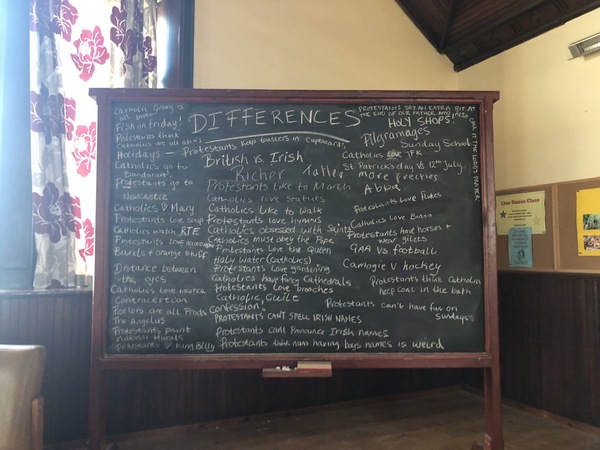 DIFFERENCES
Catholic Gravy is
all
Fish on friday!
Protestants think
Catholics are all
Holidays —
Catholics go to
Bundoran!
Protestants go to
Newcastle
Catholics ♡ Mary
Protestants love soup
Catholics watch RTE
Protestants love
Banners + orange stuff
Distance between
the eyes
Catholics
Contraception
Peelers are all Prods
The Angelus
Protestants paint
Murals
Protestants ♡ King Billy
Protestants keep toasters in cupboards
British vs. Irish
Richer Taller
Protestants Like to March
Catholics love statues
Catholics Like to Walk
Protestants love hymns
Catholics obsessed with Saints
Catholics must obey the Pope
Protestants Love the Queen
Holy water (Catholics)
Protestants Love gardening
Catholics have fancy Cathedrals
Protestants Love brooches
Catholic Guilt
Confession
PROTESTANTS CAN'T SPELL IRISH NAMES
Protestants can't Pronounce Irish names
Protestants think nuns having boys names is weird
PROTESTANTS SAY AN EXTRA BIT AT
THE END OF OUR FATHER AND
CALL IT THE LORD'S PRAYER
HOLY SHOPS!
Pilgramages
Sunday School
Catholics Love JFK
St Patrick's day vs 12th July
More freckles
Abba
Protestants Love Flutes
Catholics Love Bingo
Protestants have horses +
wear gilets
GAA vs football
Camogie V hockey
Protestants think Catholics
keep coal in the bath
Protestants can't have fun on
Sundays
Line Dance Class